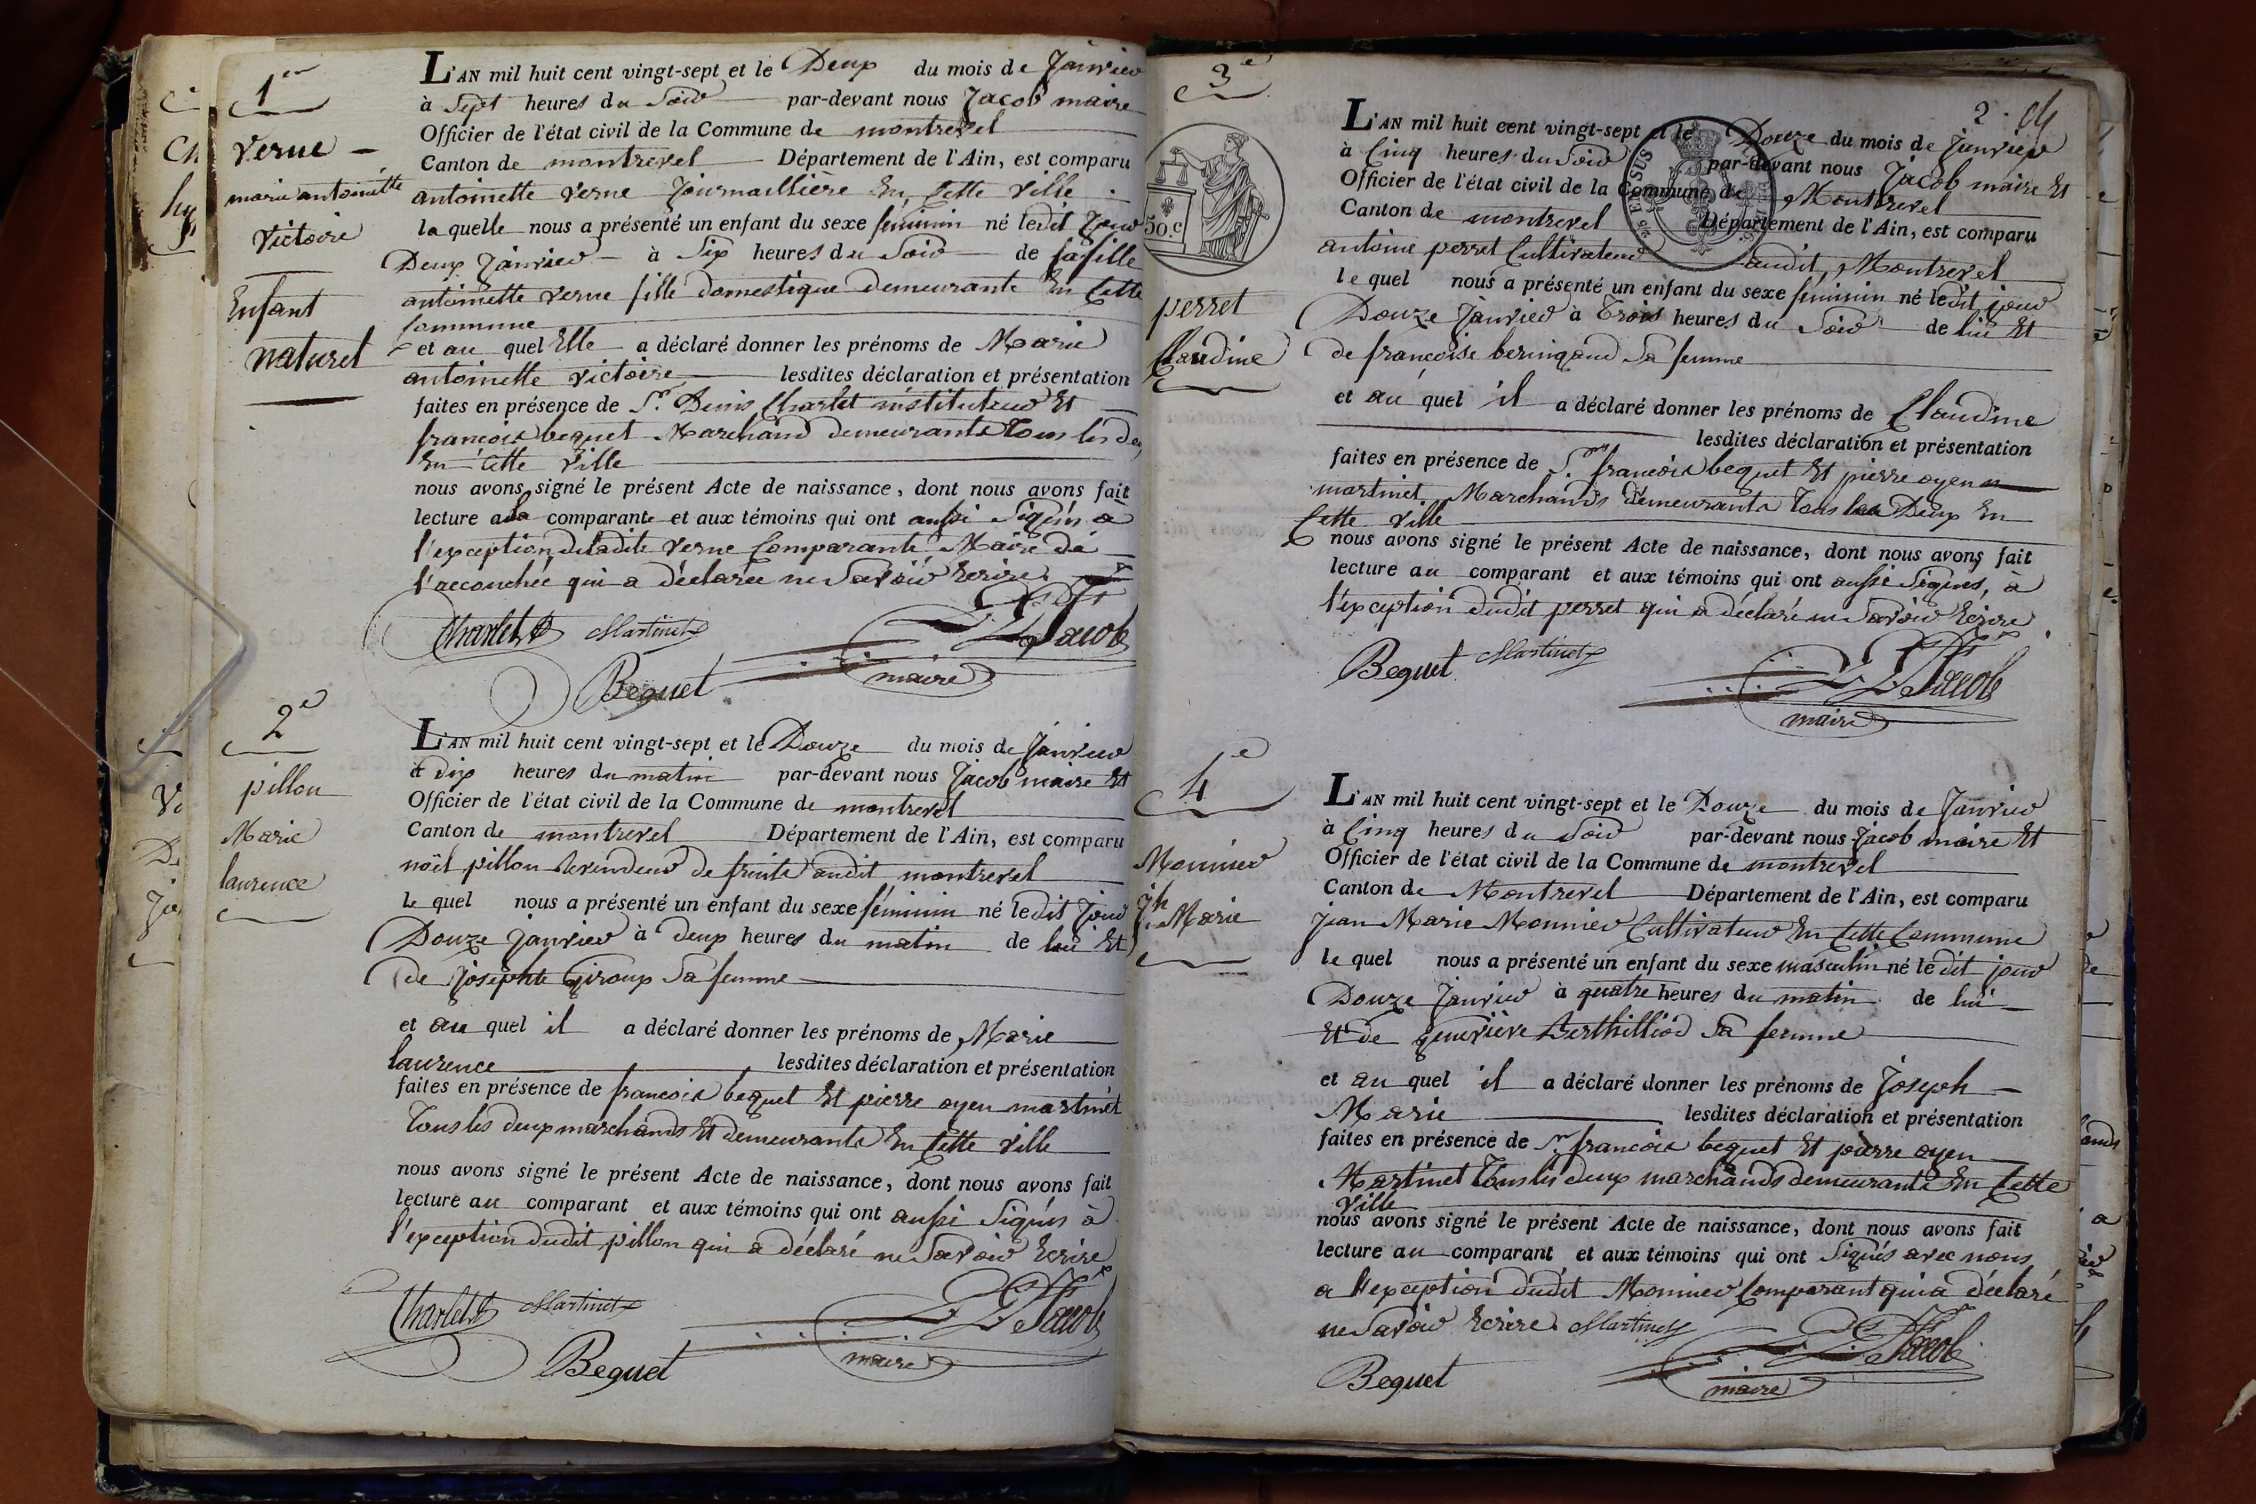 1er
Verne
marie antoinette
Victoire
Enfant
naturel
L'AN mil huit cent vingt-sept et le Deux du mois de Janvier
à Sept heures du Soir par-devant nous Jacob maire
Officier de l'état civil de la Commune de montrevel
Canton de montrevel Département de l'Ain, est comparu
antoinette Verne Journaillière En Cette Ville
la quelle nous a présenté un enfant du sexe féminin né ledit Jour
Deux Janvier à Six heures du Soir de sa fille
antoinette Verne fille domestique demeurante En Cette
Commune
et au quel Elle a déclaré donner les prénoms de Marie
antoinette Victoire lesdites déclaration et présentation
faites en présence de Sr. Denis Charlet instituteur Et
françois bequet Marchand demeurants tous les deux
En Cette Ville
nous avons signé le présent Acte de naissance, dont nous avons fait
lecture a la comparante et aux témoins qui ont aussi Signés a
l'exception de ladite Verne Comparante Maire de
l'accouchée qui a déclarée ne Savoir Ecrire.
Charlet Martinet Jacob
Bequet maire
2e
pillon
Marie
laurence
L'AN mil huit cent vingt-sept et le Douze du mois de Janvier
à dix heures du matin par-devant nous Jacob maire Et
Officier de l'état civil de la Commune de montrevel
Canton de montrevel Département de l'Ain, est comparu
noël pillon Revendeur de fruits audit montrevel
le quel nous a présenté un enfant du sexe féminin né ledit Jour
Douze Janvier à deux heures du matin de lui Et
de Josephte Giroux Sa femme
et au quel il a déclaré donner les prénoms de Marie
laurence lesdites déclaration et présentation
faites en présence de françois bequet Et pierre oyen martinet
Tous les deux marchands Et demeurants En Cette Ville
nous avons signé le présent Acte de naissance, dont nous avons fait
lecture au comparant et aux témoins qui ont aussi Signés à
l'exception dudit pillon qui a déclaré ne Savoir Ecrire
Charlet Martinet Jacob
Bequet maire
3e
50.c
perret
Claudine
2.
L'AN mil huit cent vingt-sept et le Douze du mois de Janvier
à Cinq heures du Soir par-devant nous Jacob maire Et
Officier de l'état civil de la Commune de Montrevel
Canton de montrevel Département de l'Ain, est comparu
antoine perret Cultivateur audit Montrevel
le quel nous a présenté un enfant du sexe féminin né ledit jour
Douze Janvier à Trois heures du Soir de lui Et
de françoise beringaud Sa femme
et au quel il a déclaré donner les prénoms de Claudine
lesdites déclaration et présentation
faites en présence de Srs françois bequet Et pierre oyen
martinet Marchands demeurants Tous les Deux En
Cette Ville
nous avons signé le présent Acte de naissance, dont nous avons fait
lecture au comparant et aux témoins qui ont aussi Signés, à
l'exception dudit perret qui a déclaré ne Savoir Ecrire
Bequet Martinet Jacob
maire
4e
Monnier
Jh Marie
L'AN mil huit cent vingt-sept et le Douze du mois de Janvier
à Cinq heures du Soir par-devant nous Jacob maire Et
Officier de l'état civil de la Commune de montrevel
Canton de Montrevel Département de l'Ain, est comparu
Jean Marie Monnier Cultivateur En Cette Commune
le quel nous a présenté un enfant du sexe masculin né le dit jour
Douze Janvier à quatre heures du matin de lui
Et de Genevière Berthilliod Sa femme
et au quel il a déclaré donner les prénoms de Joseph
Marie lesdites déclaration et présentation
faites en présence de Sr. françois bequet Et pierre oyen
Martinet Tous les deux marchands demeurants En Cette
Ville
nous avons signé le présent Acte de naissance, dont nous avons fait
lecture au comparant et aux témoins qui ont Signés avec nous
a l'exception dudit Monnier Comparant qui a déclaré
ne Savoir Ecrire. Martinet Jacob
Bequet maire